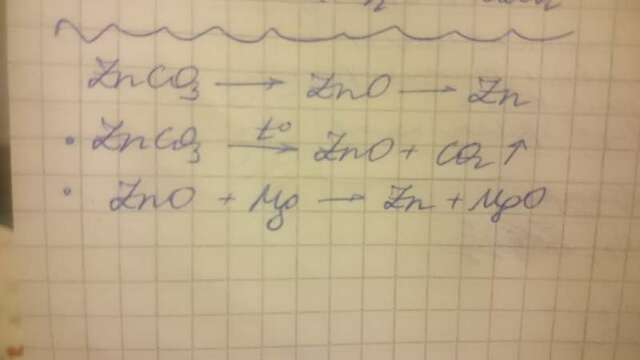 ZnCO3 → ZnO → Zn
• ZnCO3 t° → ZnO + CO2 ↑
• ZnO + Mg → Zn + MgO